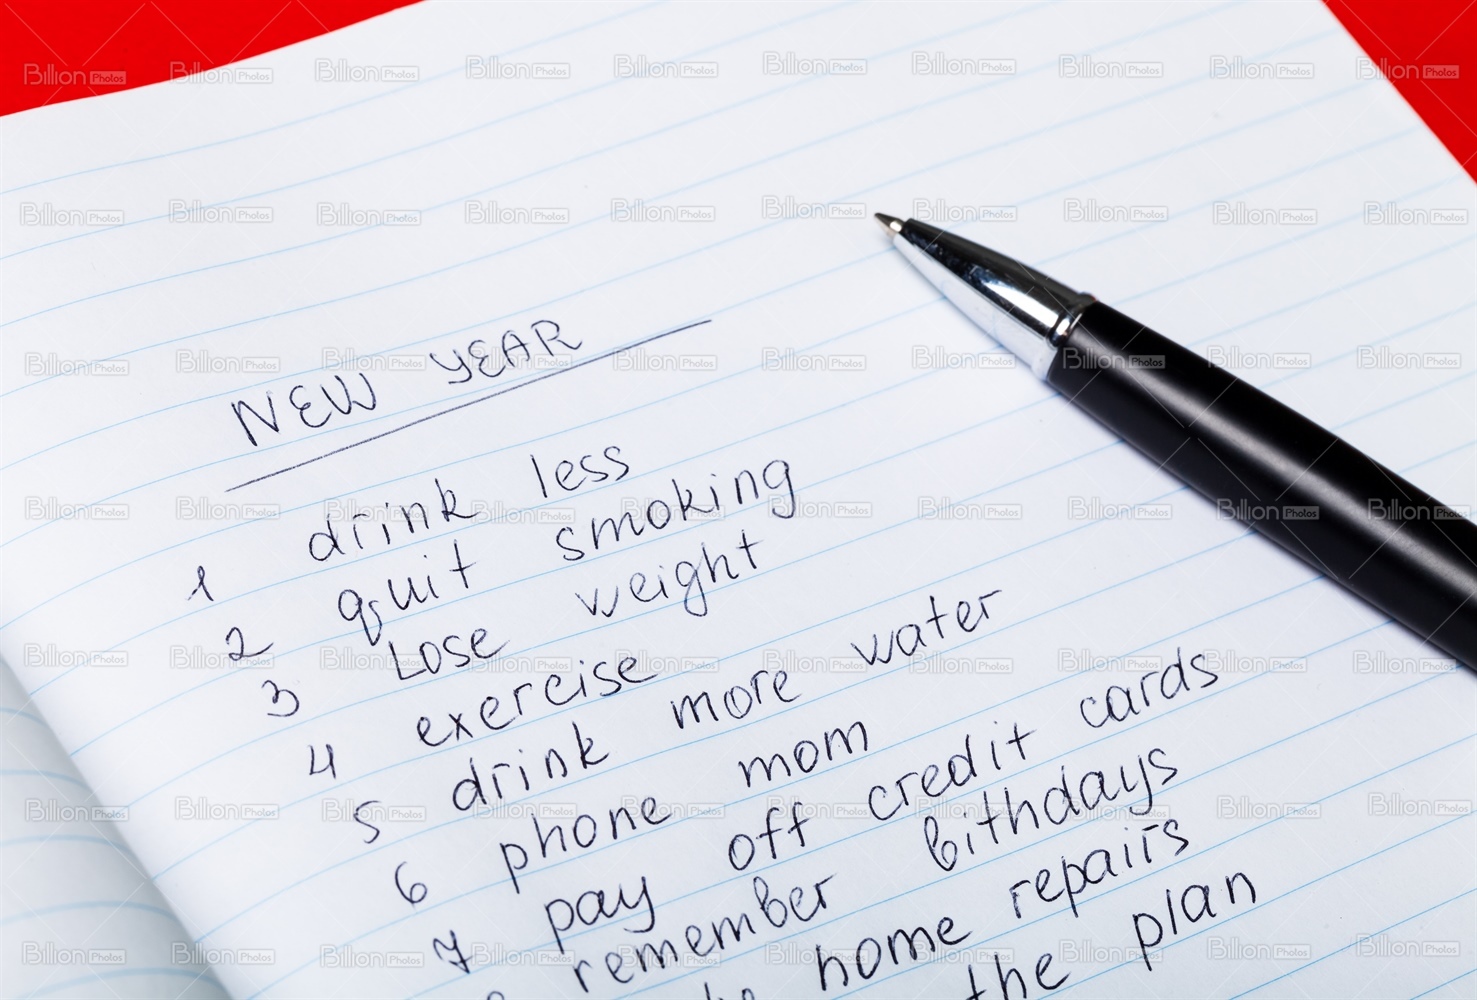 NEW YEAR
1 drink less
2 quit smoking
3 Lose weight
4 exercise
5 drink more water
6 phone mom
7 pay off credit cards
remember bithdays
home repairs
the plan